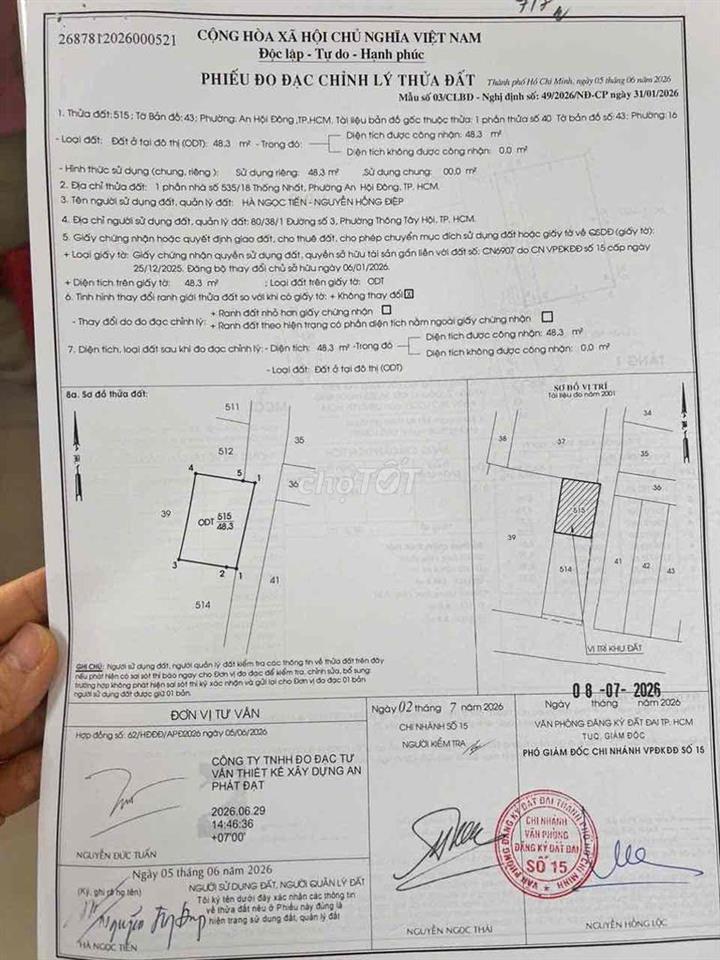 2687812026000521
CỘNG HÒA XÃ HỘI CHỦ NGHĨA VIỆT NAM
Độc lập - Tự do - Hạnh phúc
PHIẾU ĐO ĐẠC CHỈNH LÝ THỬA ĐẤT
Thành phố Hồ Chí Minh, ngày 05 tháng 06 năm 2026
Mẫu số 03/CLBĐ - Nghị định số: 49/2026/NĐ-CP ngày 31/01/2026
1. Thửa đất: 515 ; Tờ Bản đồ: 43; Phường: An Hội Đông ,TP.HCM. Tài liệu bản đồ gốc thuộc thửa: 1 phần thửa số 40 Tờ bản đồ số: 43; Phường: 16
- Loại đất: Đất ở tại đô thị (ODT): 48.3 m² - Trong đó:
Diện tích được công nhận: 48.3 m²
Diện tích không được công nhận: 0.0 m²
- Hình thức sử dụng (chung, riêng ): Sử dụng riêng: 48.3 m² ,Sử dụng chung: 00.0 m²
2. Địa chỉ thửa đất: 1 phần nhà số 535/18 Thống Nhất, Phường An Hội Đông, TP. HCM.
3. Tên người sử dụng đất, quản lý đất: HÀ NGỌC TIẾN - NGUYỄN HỒNG ĐIỆP
4. Địa chỉ người sử dụng đất, quản lý đất: 80/38/1 Đường số 3, Phường Thông Tây Hội, TP. HCM.
5. Giấy chứng nhận hoặc quyết định giao đất, cho thuê đất, cho phép chuyển mục đích sử dụng đất hoặc giấy tờ về QSDĐ (giấy tờ):
+ Loại giấy tờ: Giấy chứng nhận quyền sử dụng đất, quyền sở hữu tài sản gắn liền với đất số: CN6907 do CN VPĐKĐĐ SỐ 15 cấp ngày
25/12/2025. Đăng bộ thay đổi chủ sở hữu ngày 06/01/2026.
+ Diện tích trên giấy tờ: 48.3 m² ; Loại đất trên giấy tờ: ODT
6. Tình hình thay đổi ranh giới thửa đất so với khi có giấy tờ: + Không thay đổi
- Thay đổi do đo đạc chỉnh lý:
+ Ranh đất nhỏ hơn giấy chứng nhận
+ Ranh đất theo hiện trạng có phần diện tích nằm ngoài giấy chứng nhận
7. Diện tích, loại đất sau khi đo đạc chỉnh lý: - Diện tích: 48.3 m² -Trong đó
Diện tích được công nhận: 48.3 m²
Diện tích không được công nhận: 0.0 m²
- Loại đất: Đất ở tại đô thị (ODT)
8a. Sơ đồ thửa đất:
511
512
35
4
5
1
36
39
ODT 515
48.3
3
2
1
41
514
SƠ ĐỒ VỊ TRÍ
Tài liệu đo năm 2001
34
38
37
35
36
515
39
514
41
42
43
VỊ TRÍ KHU ĐẤT
chợTỐT
GHI CHÚ: Người sử dụng đất, người quản lý đất kiểm tra các thông tin về thửa đất trên đây
nếu phát hiện có sai sót thì báo ngay cho Đơn vị đo đạc để kiểm tra, chỉnh sửa, bổ sung;
trường hợp không phát hiện sai sót thì ký xác nhận và gửi lại cho Đơn vị đo đạc 01 bản
người sử dụng đất được giữ 01 bản.
ĐƠN VỊ TƯ VẤN
Hợp đồng số: 62/HĐĐĐ/APĐ2026 ngày 05/06/2026
CÔNG TY TNHH ĐO ĐẠC TƯ
VẤN THIẾT KẾ XÂY DỰNG AN
PHÁT ĐẠT
2026.06.29
14:46:36
+07'00'
NGUYỄN ĐỨC TUẤN
Ngày 05 tháng 06 năm 2026
(Ký, ghi rõ họ tên)
NGƯỜI SỬ DỤNG ĐẤT, NGƯỜI QUẢN LÝ ĐẤT
Tôi ký tên dưới đây xác nhận các thông tin
về thửa đất nêu ở Phiếu này đúng là
hiện trạng sử dụng đất, quản lý đất
HÀ NGỌC TIẾN
Ngày 02 tháng 7 năm 2026
CHI NHÁNH SỐ 15
NGƯỜI KIỂM TRA
NGUYỄN NGỌC THÁI
08-07-2026
Ngày tháng năm 2026
VĂN PHÒNG ĐĂNG KÝ ĐẤT ĐAI TP. HCM
TUQ. GIÁM ĐỐC
PHÓ GIÁM ĐỐC CHI NHÁNH VPĐKĐĐ SỐ 15
VĂN PHÒNG ĐĂNG KÝ ĐẤT ĐAI THÀNH PHỐ HỒ CHÍ MINH
CHI NHÁNH
VĂN PHÒNG
ĐĂNG KÝ ĐẤT ĐAI
SỐ 15
NGUYỄN HỒNG LỘC